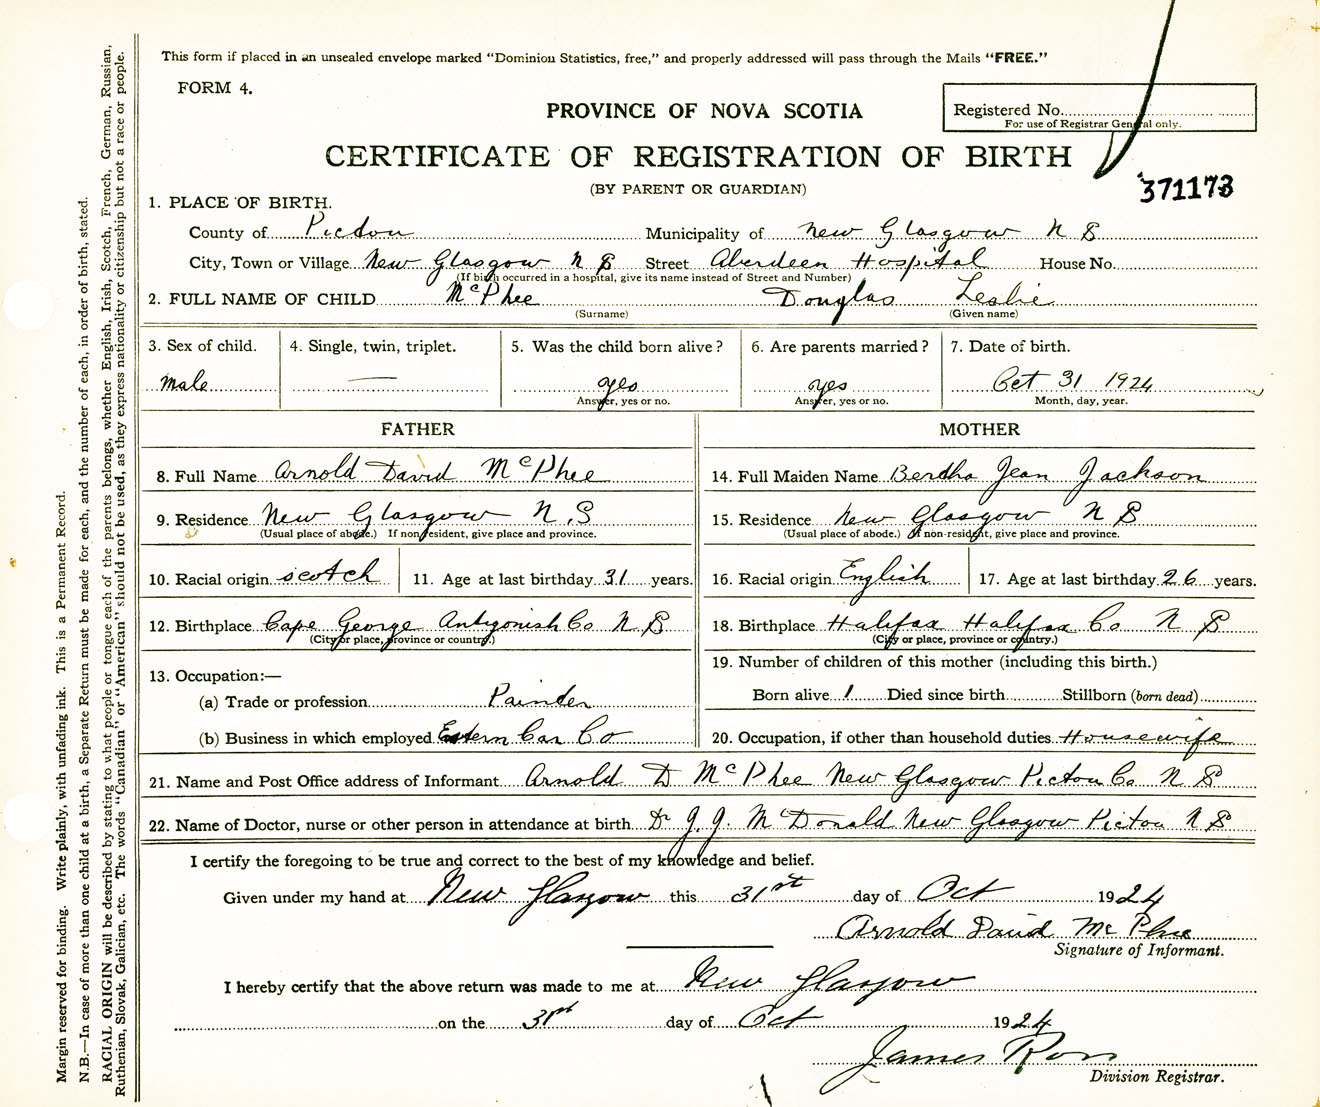 This form if placed in an unsealed envelope marked “Dominion Statistics, free,” and properly addressed will pass through the Mails “FREE.”
FORM 4.
PROVINCE OF NOVA SCOTIA
Registered No.
For use of Registrar General only.
CERTIFICATE OF REGISTRATION OF BIRTH
(BY PARENT OR GUARDIAN)
371173
1. PLACE OF BIRTH.
County of Pictou Municipality of New Glasgow N S
City, Town or Village New Glasgow N S Street Aberdeen Hospital House No.
(If birth occurred in a hospital, give its name instead of Street and Number)
2. FULL NAME OF CHILD McPhee Douglas Leslie
(Surname) (Given name)
3. Sex of child. 4. Single, twin, triplet. 5. Was the child born alive? 6. Are parents married? 7. Date of birth.
Male — yes yes Oct 31 1924
Answer, yes or no. Answer, yes or no. Month, day, year.
FATHER MOTHER
8. Full Name Arnold David McPhee 14. Full Maiden Name Bertha Jean Jackson
9. Residence New Glasgow N.S 15. Residence New Glasgow N S
(Usual place of abode.) If non-resident, give place and province. (Usual place of abode.) If non-resident, give place and province.
10. Racial origin scotch 11. Age at last birthday 31 years. 16. Racial origin English 17. Age at last birthday 26 years.
12. Birthplace Cape George Antigonish Co N S 18. Birthplace Halifax Halifax Co N S
(City or place, province or country.) (City or place, province or country.)
13. Occupation:— 19. Number of children of this mother (including this birth.)
(a) Trade or profession Painter Born alive 1 Died since birth Stillborn (born dead)
(b) Business in which employed Estern Car Co 20. Occupation, if other than household duties Housewife
21. Name and Post Office address of Informant Arnold D McPhee New Glasgow Pictou Co N S
22. Name of Doctor, nurse or other person in attendance at birth Dr J. J. McDonald New Glasgow Pictou N S
I certify the foregoing to be true and correct to the best of my knowledge and belief.
Given under my hand at New Glasgow this 31st day of Oct 1924
Arnold David McPhee
Signature of Informant.
I hereby certify that the above return was made to me at New Glasgow
on the 31st day of Oct 1924
James Ross
Division Registrar.
Margin reserved for binding. Write plainly, with unfading ink. This is a Permanent Record.
N.B.—In case of more than one child at a birth, a Separate Return must be made for each, and the number of each, in order of birth, stated.
RACIAL ORIGIN will be described by stating to what people or tongue each of the parents belongs, whether English, Irish, Scotch, French, German, Russian,
Ruthenian, Slovak, Galician, etc. The words “Canadian” or “American” should not be used, as they express nationality or citizenship but not a race or people.